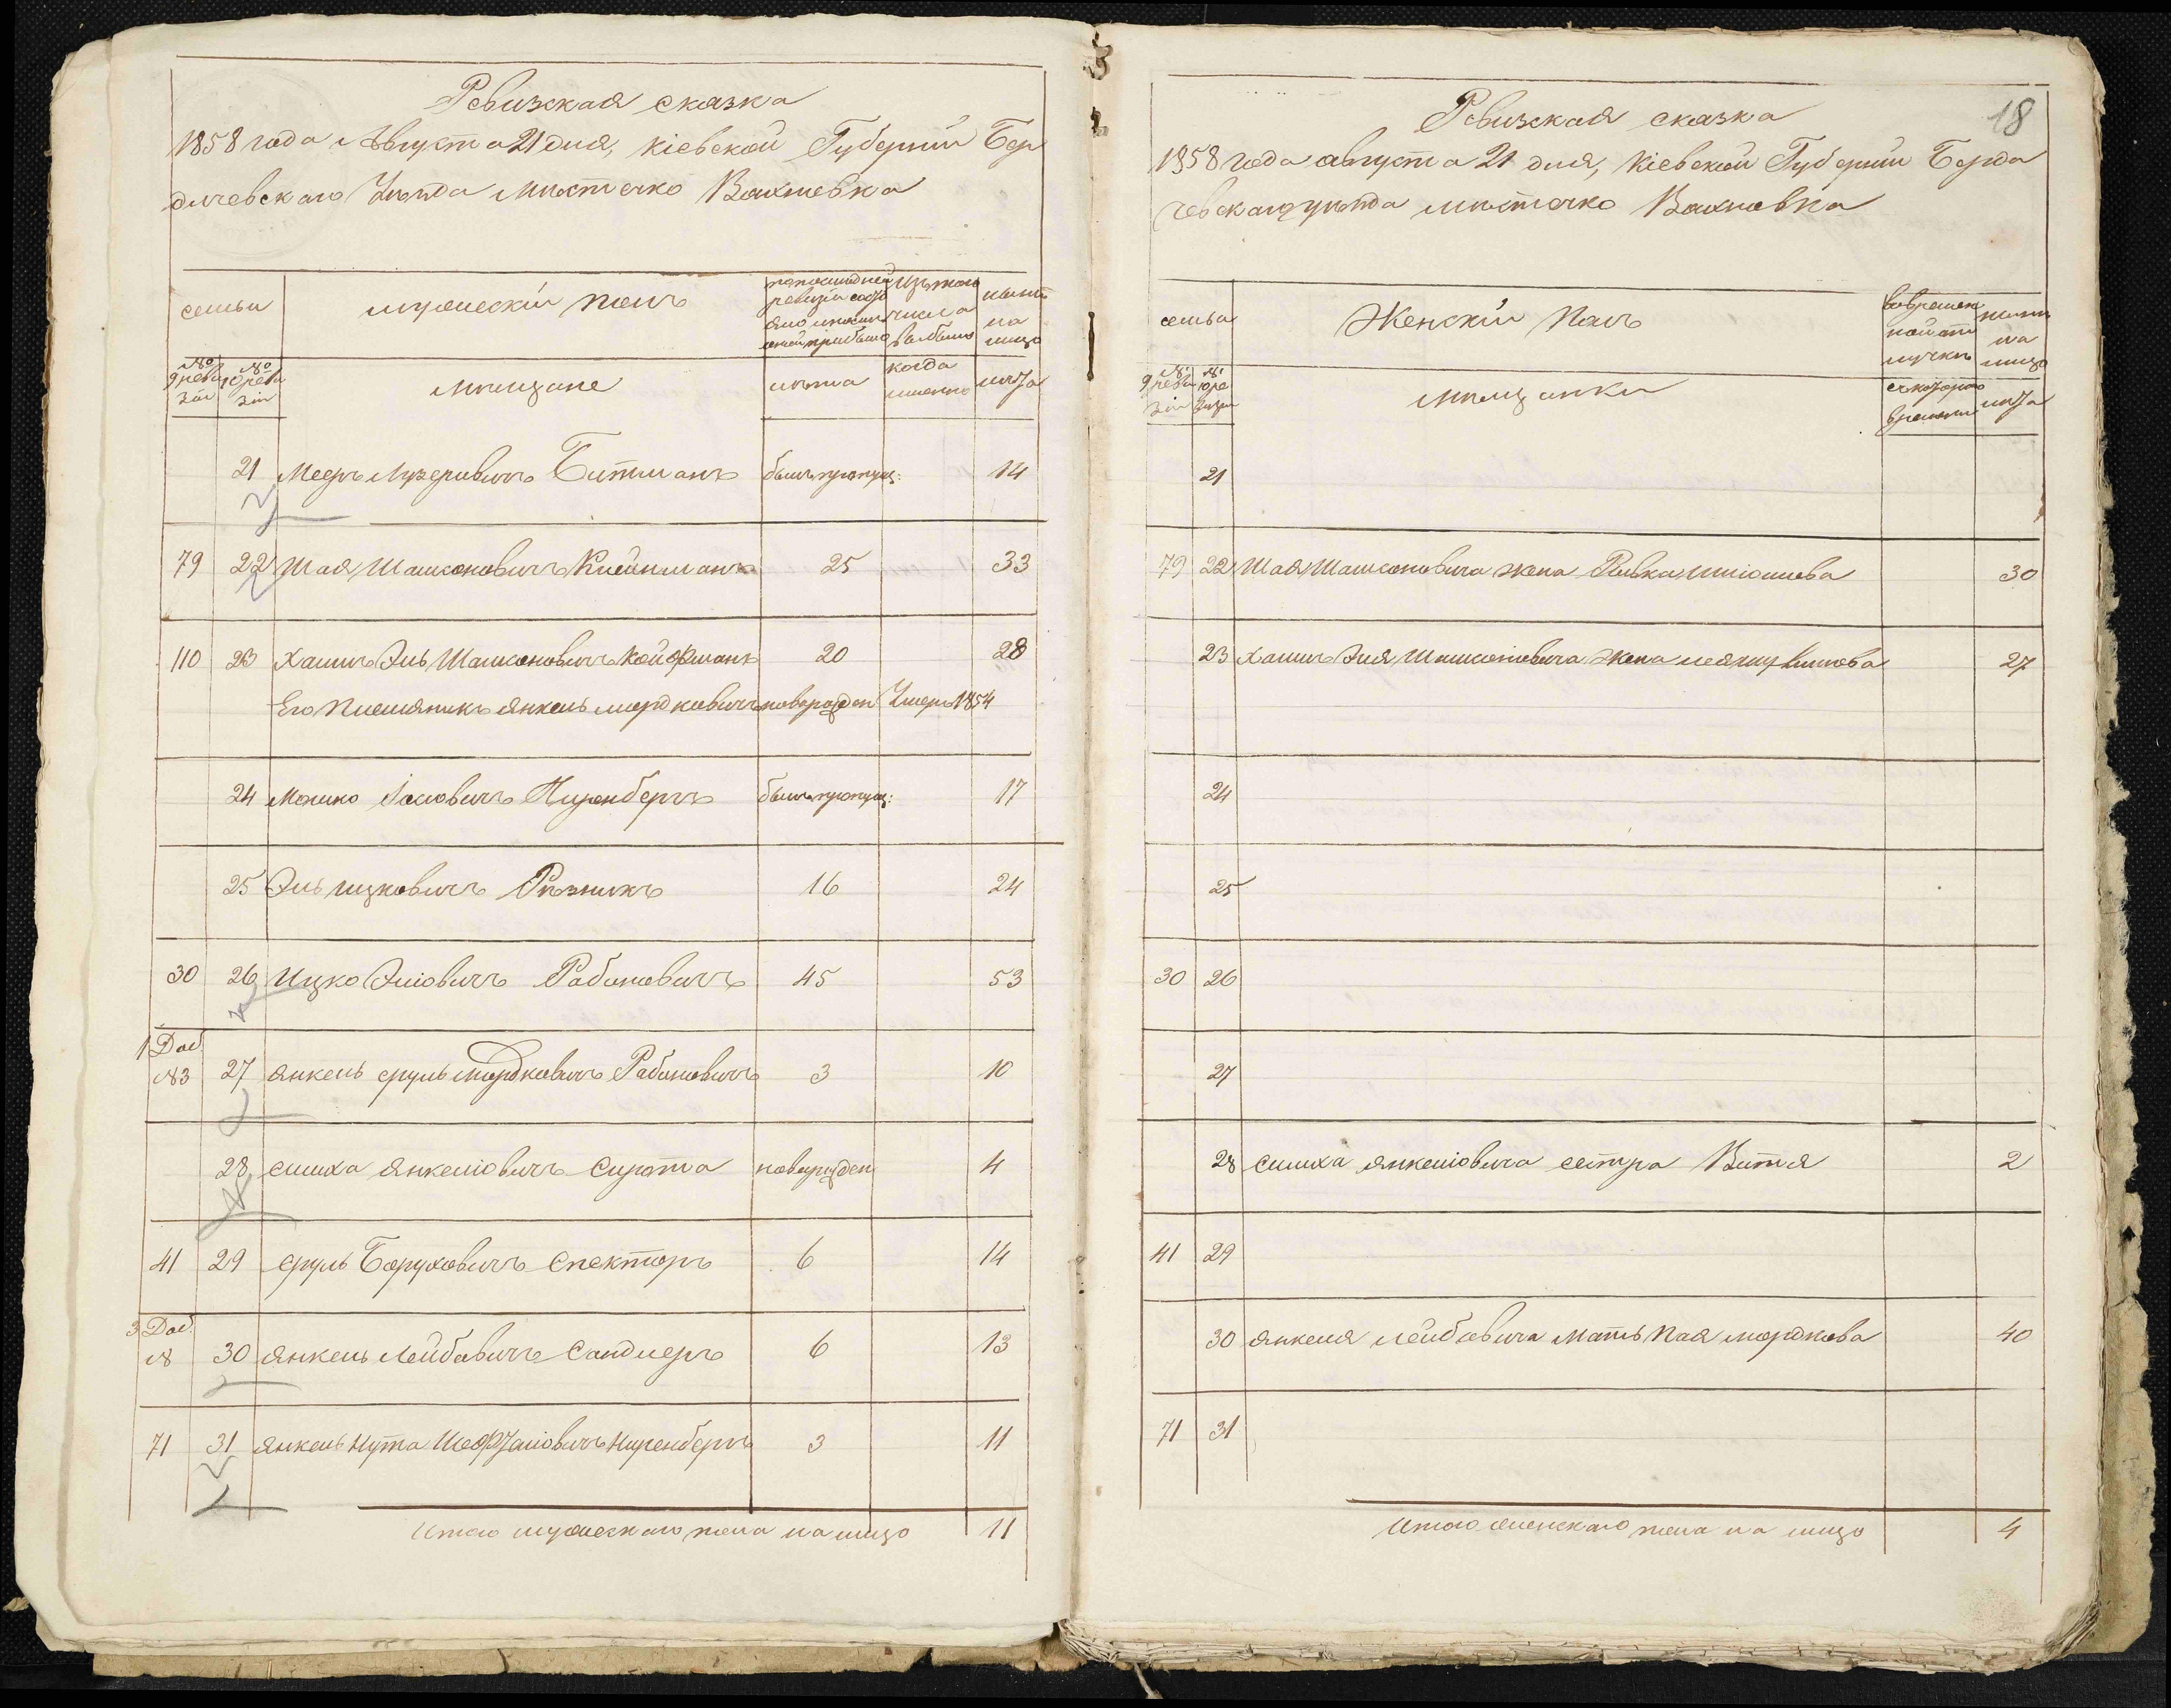 Ревизская сказка
1858 года Августа 21 дня, Кіевской Губерніи Бер
дичевскаго Уѣзда мѣстечко Вахновка
семьи
мужескій полъ
по последней ревизіи состояло и после оной прибыло
изъ того числа выбыло
нынѣ на лицо
№ 9 ревизіи
№ 10 ревизіи
мѣщане
лѣта
когда именно
лѣта
21 Мееръ Лузеровичъ Битманъ былъ пропущ: 14
79 22 Шая Шашконовичъ 25 33
110 23 Хаимъ Эль Шашконовичъ Койфманъ 20 28
Его Племяникъ Янкель Мордковичъ новорожден Умеръ 1854
24 Мошко Іосіовичъ Ниренбергъ былъ пропущ: 17
25 Эль Ицковичъ Рѣзникъ 16 24
30 26 Ицко Эліовичъ Рабиновичъ 45 53
1 Доб.
№3 27 Янкель Сруль Мордковичъ Рабиновичъ 3 10
28 Симха Янкеліовичъ Сирота новорожден 4
41 29 Сруль Боруховичъ Спекторъ 6 14
3 Доб.
№ 30 Янкель Лейбовичъ Сандлеръ 6 13
71 31 Янкель Нута Ниренбергъ 3 11
Итого мужескаго пола на лицо 11
18
Ревизская сказка
1858 года августа 21 дня, Кіевской Губерніи Берди
чевскаго уѣзда мѣстечко Вахновка
семья
Женскій Полъ
во временной отлучкѣ
нынѣ на лицо
№ 9 ревизіи
№ 10 ревизіи
мѣщанки
съ котораго времени
лѣта
21
79 22 Шая Шашконовича жена Ривка 30
23 Хаимъ Эля Шашконовича жена 27
24
25
30 26
27
28 Симха Янкеліовича сестра Витя 2
41 29
30 Янкеля Лейбовича мать Пая Мордкова 40
71 31
Итого женскаго пола на лицо 4